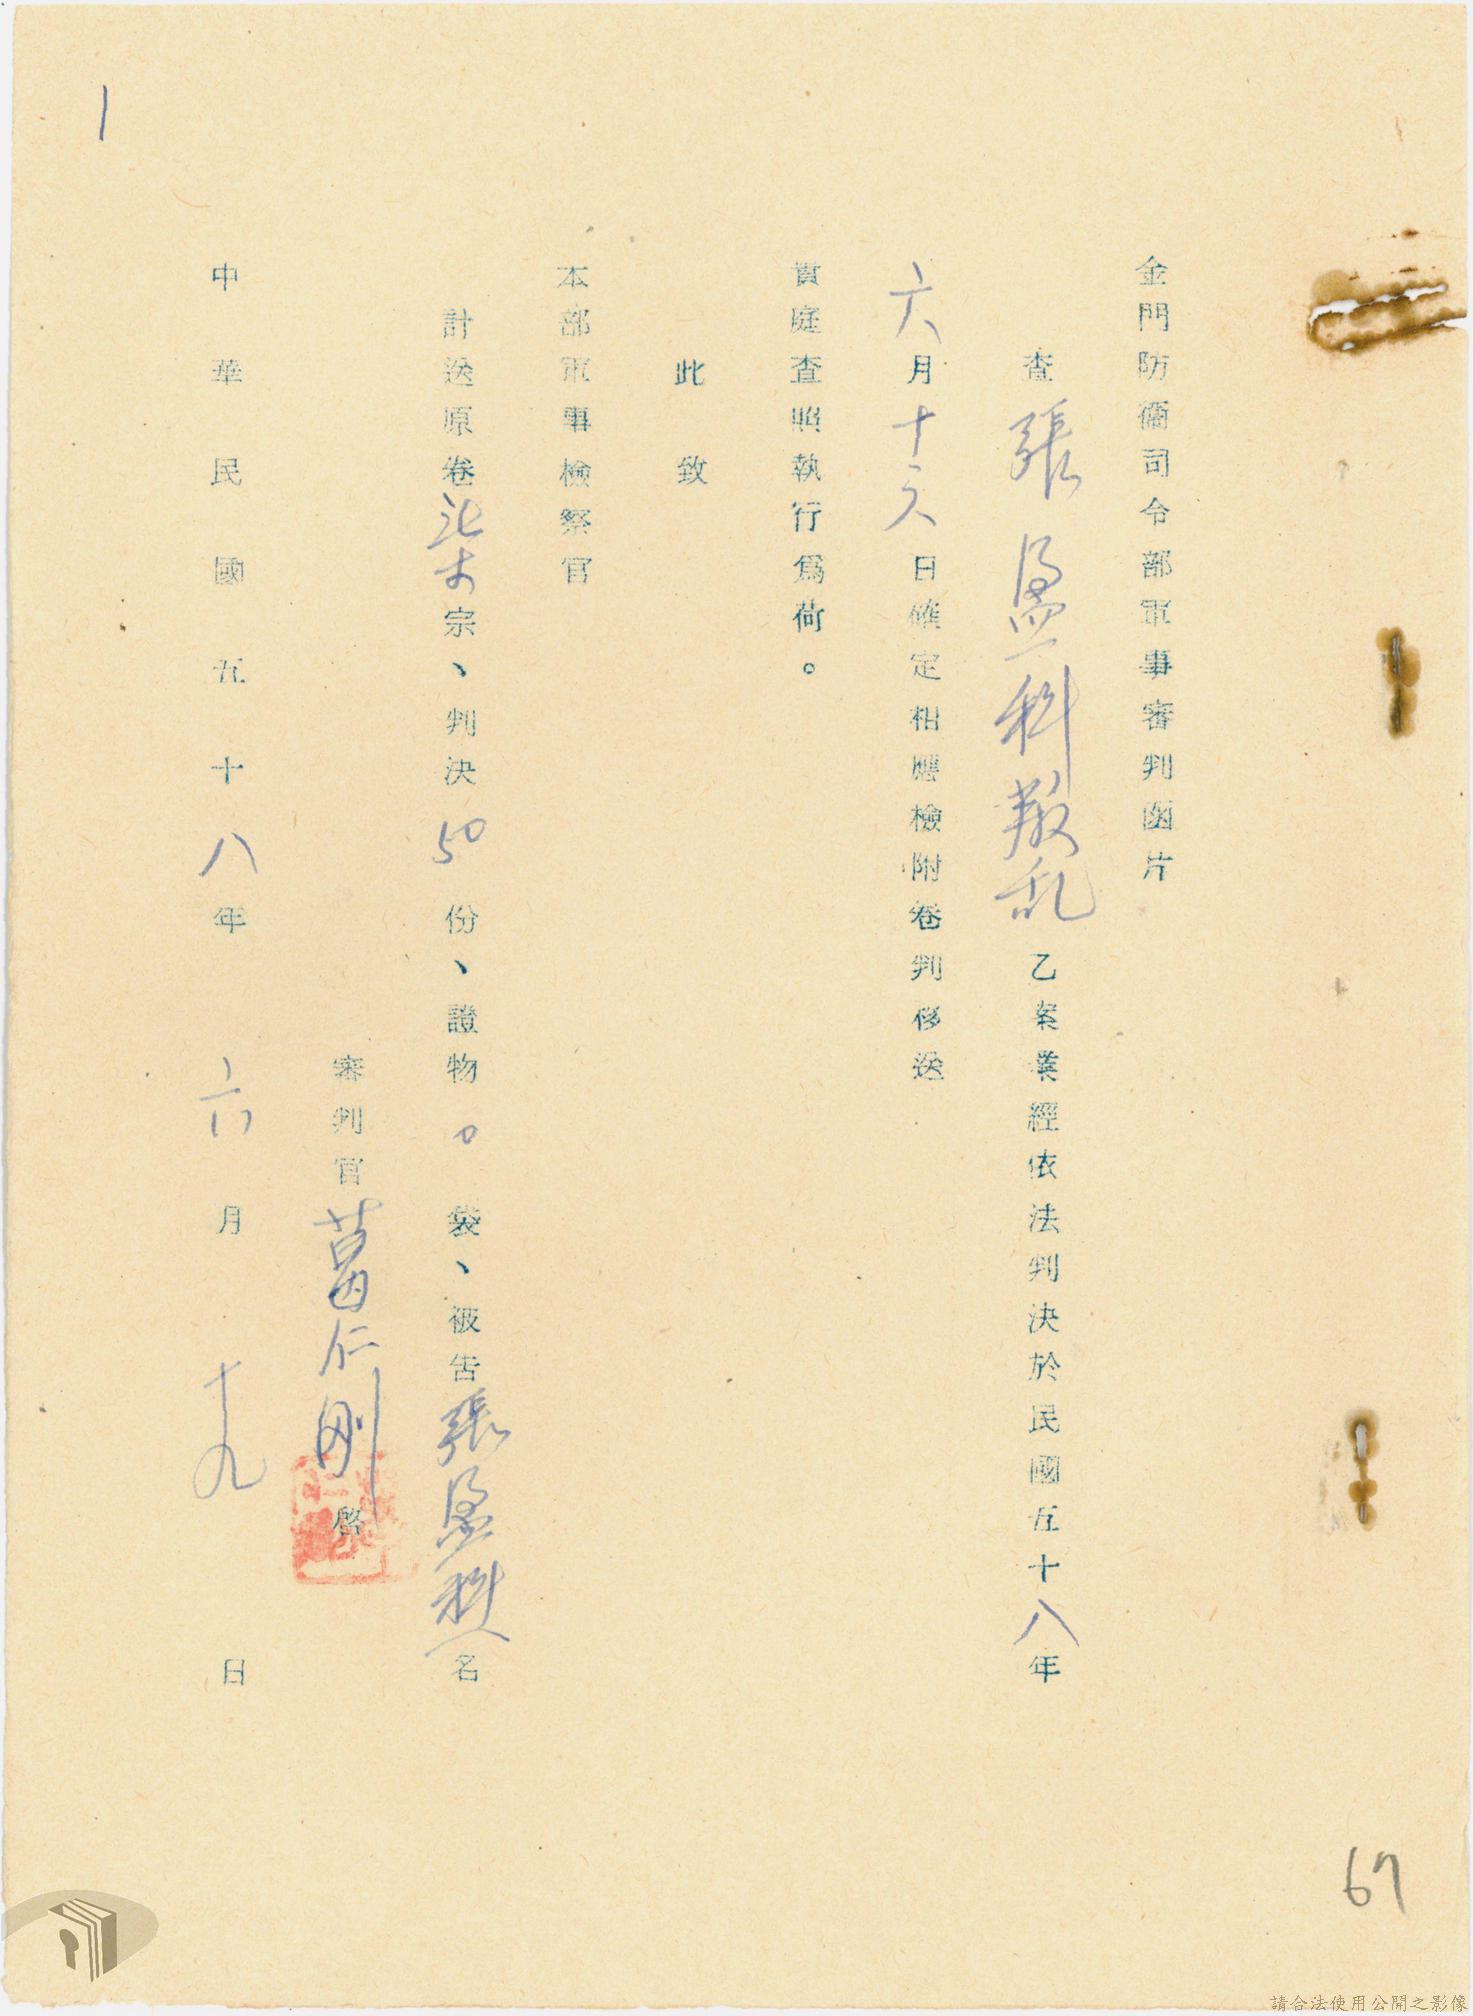 金門防衛司令部軍事審判函片
查張盈科叛乱乙案業經依法判決於民國五十八年
六月十六日確定相應檢附卷判移送
貴庭查照執行爲荷。
此致
本部軍事檢察官
計送原卷柒宗、判決50份、證物0袋、被告張盈科一名
審判官葛仁剛啓
中華民國五十八年六月十九日
1
67
請合法使用公開之影像